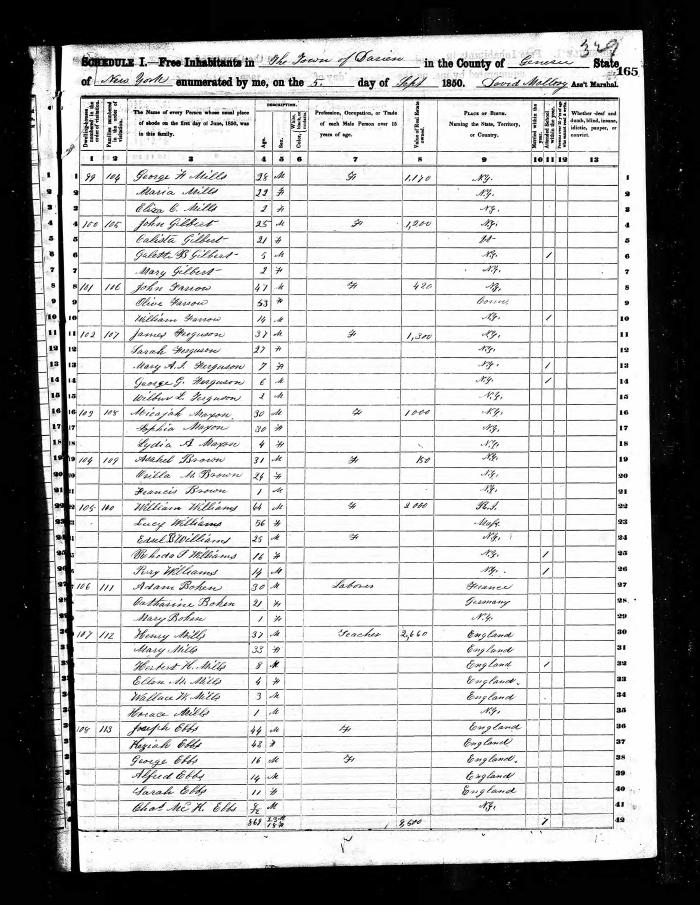 329
SCHEDULE I.—Free Inhabitants in The Town of Darien in the County of Genesee State
165
of New York enumerated by me, on the 5 day of Sept 1850. David Mallory Ass't Marshal.
Dwelling-houses numbered in the order of visitation.
Families numbered in the order of visitation.
The Name of every Person whose usual place of abode on the first day of June, 1850, was in this family.
DESCRIPTION.
Age.
Sex.
Color,
Profession, Occupation, or Trade of each Male Person over 15 years of age.
Value of Real Estate owned.
PLACE OF BIRTH. Naming the State, Territory, or Country.
Married within the year.
Attended School within the year.
Whether deaf and dumb, blind, insane, idiotic, pauper, or convict.
1 2 3 4 5 6 7 8 9 10 11 12 13
1 99 104 George W Mills M F 1,170 N.Y. 1
2 Maria Mills 22 F N.Y. 2
3 Eliza C. Mills 2 F N.Y. 3
4 100 105 John Gilbert 25 M F 1,200 N.Y. 4
5 Calista Gilbert 21 F Vt 5
6 Galette B Gilbert 5 M N.Y. 1 6
7 Mary Gilbert 2 F N.Y. 7
8 101 106 John Farrow 47 M F 420 N.Y. 8
9 Olive Farrow 53 F Conn. 9
10 William Farrow 14 M N.Y. 1 10
11 102 107 James Ferguson 37 M F 1,300 N.Y. 11
12 Sarah Ferguson 27 F N.Y. 12
13 Mary A.I. Ferguson 7 F N.Y. 1 13
14 George G. Ferguson 6 M N.Y. 1 14
15 Wilbur L. Ferguson 2 M N.Y. 15
16 103 108 Micajah Maxon 30 M F 1000 N.Y. 16
17 Sophia Maxon 30 F N.Y. 17
18 Lydia A Maxon 4 F N.Y. 18
19 104 109 Asahel Brown 31 M F 150 N.Y. 19
20 M. Brown 24 F N.Y. 20
21 Francis Brown 1 M N.Y. 21
22 105 110 William Williams 44 M F 2000 R.I. 22
23 Lucy Williams 56 F Mass. 23
24 Williams 25 M F N.Y. 24
25 Rhoda S Williams 16 F N.Y. 1 25
26 Perry Williams 14 M N.Y. 1 26
106 111 Adam Bohen 30 M Laborer France 27
Catharine Bohen 21 F Germany 28
Mary Bohen 1 F N.Y. 29
107 112 Henry Mills 37 M Teacher 2,660 England 30
Mary Mills 33 F England 31
Herbert H. Mills 8 M England 1 32
Ellen M. Mills 4 F England. 33
Wallace W. Mills 3 M England 34
Horace Mills 1 M N.Y. 35
108 113 Joseph Ebbs 44 M F England 36
Keziah Ebbs 43 F England 37
George Ebbs 16 M F England. 38
Alfred Ebbs 14 M England 39
Sarah Ebbs 11 F England 40
Chas. Mc H. Ebbs M N.Y. 41
23 M 18 F 7 42